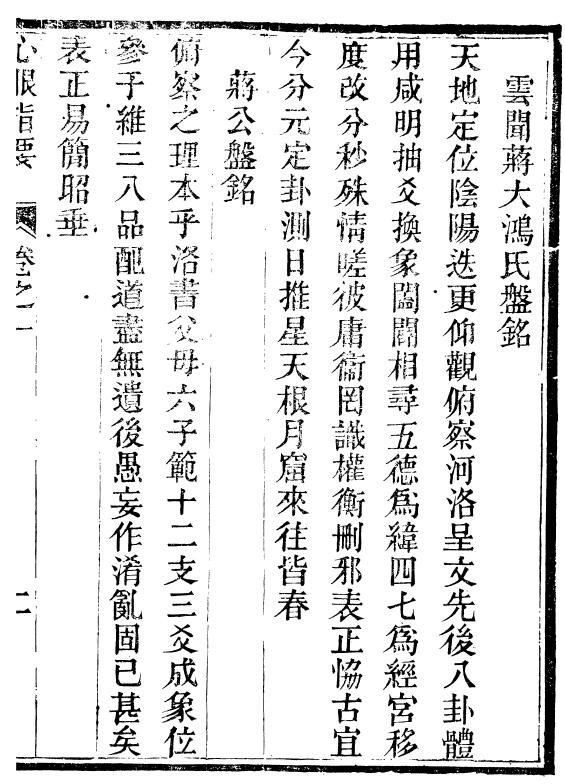 雲間蔣大鴻氏盤銘
天地定位陰陽迭更仰觀俯察河洛呈文先後八卦體
用咸明抽爻換象闔闢相尋五德爲緯四七爲經宮移
度改分秒殊情嗟彼庸術罔識權衡刪邪表正恊古宜
今分元定卦測日推星天根月窟來往皆春
蔣公盤銘
俯察之理本乎洛書父母六子範十二支三爻成象位
參于維三八品配道盡無遺後愚妄作淆亂固已甚矣
表正易簡昭垂
心眼指要 卷之一 二